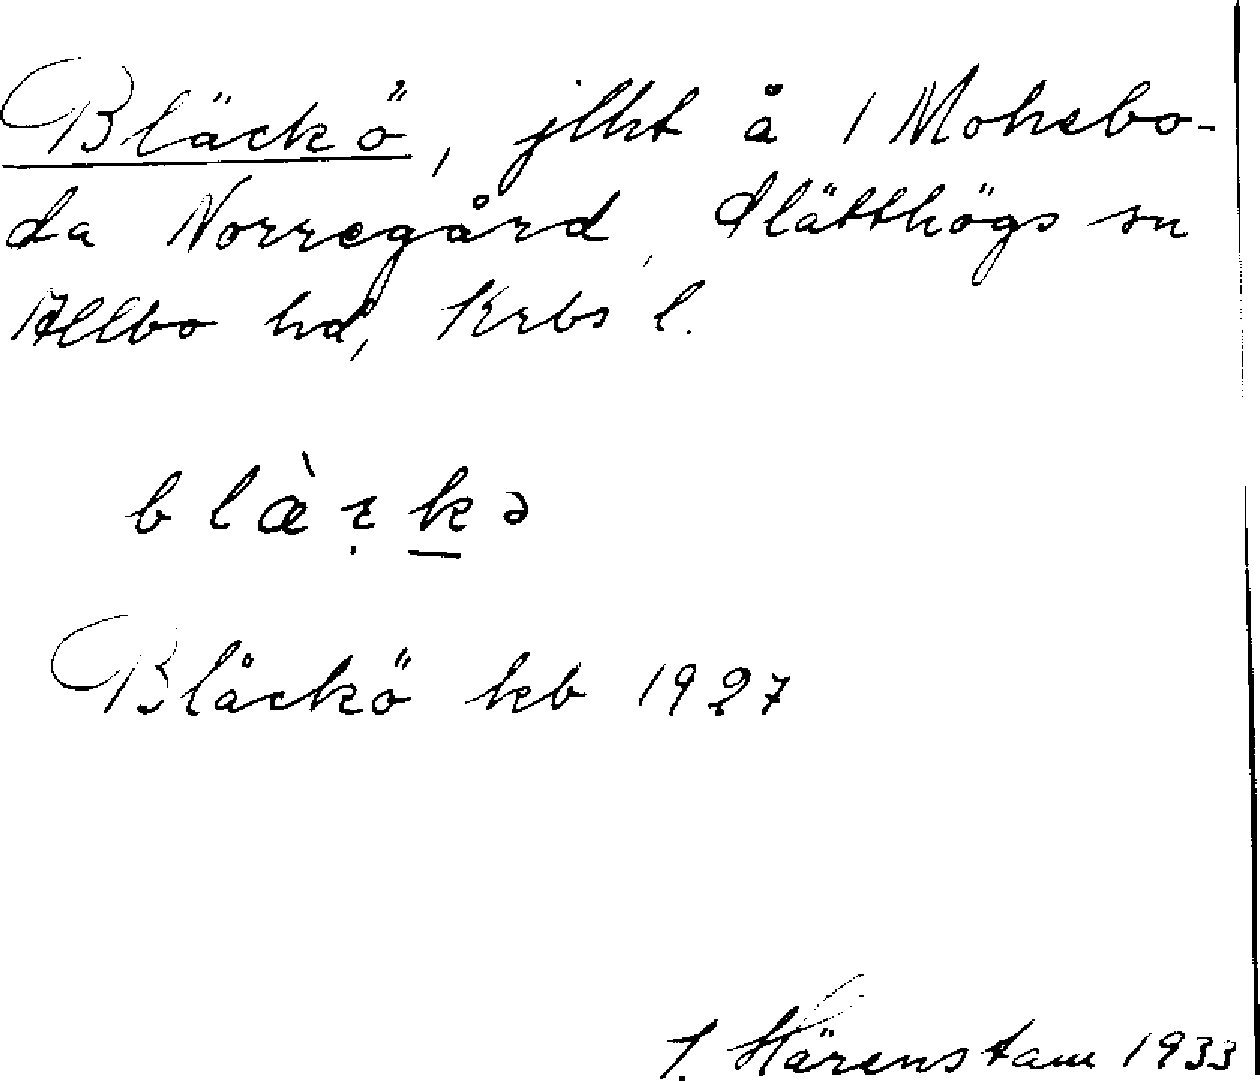 Bläckö, jlht å 1 Mohebo-
da Norregård, Slätthögs sn
Allbo hd, Krbs l.
blæ̀ṛk̲ə
Bläckö kb 1927
J. Härenstam 1933